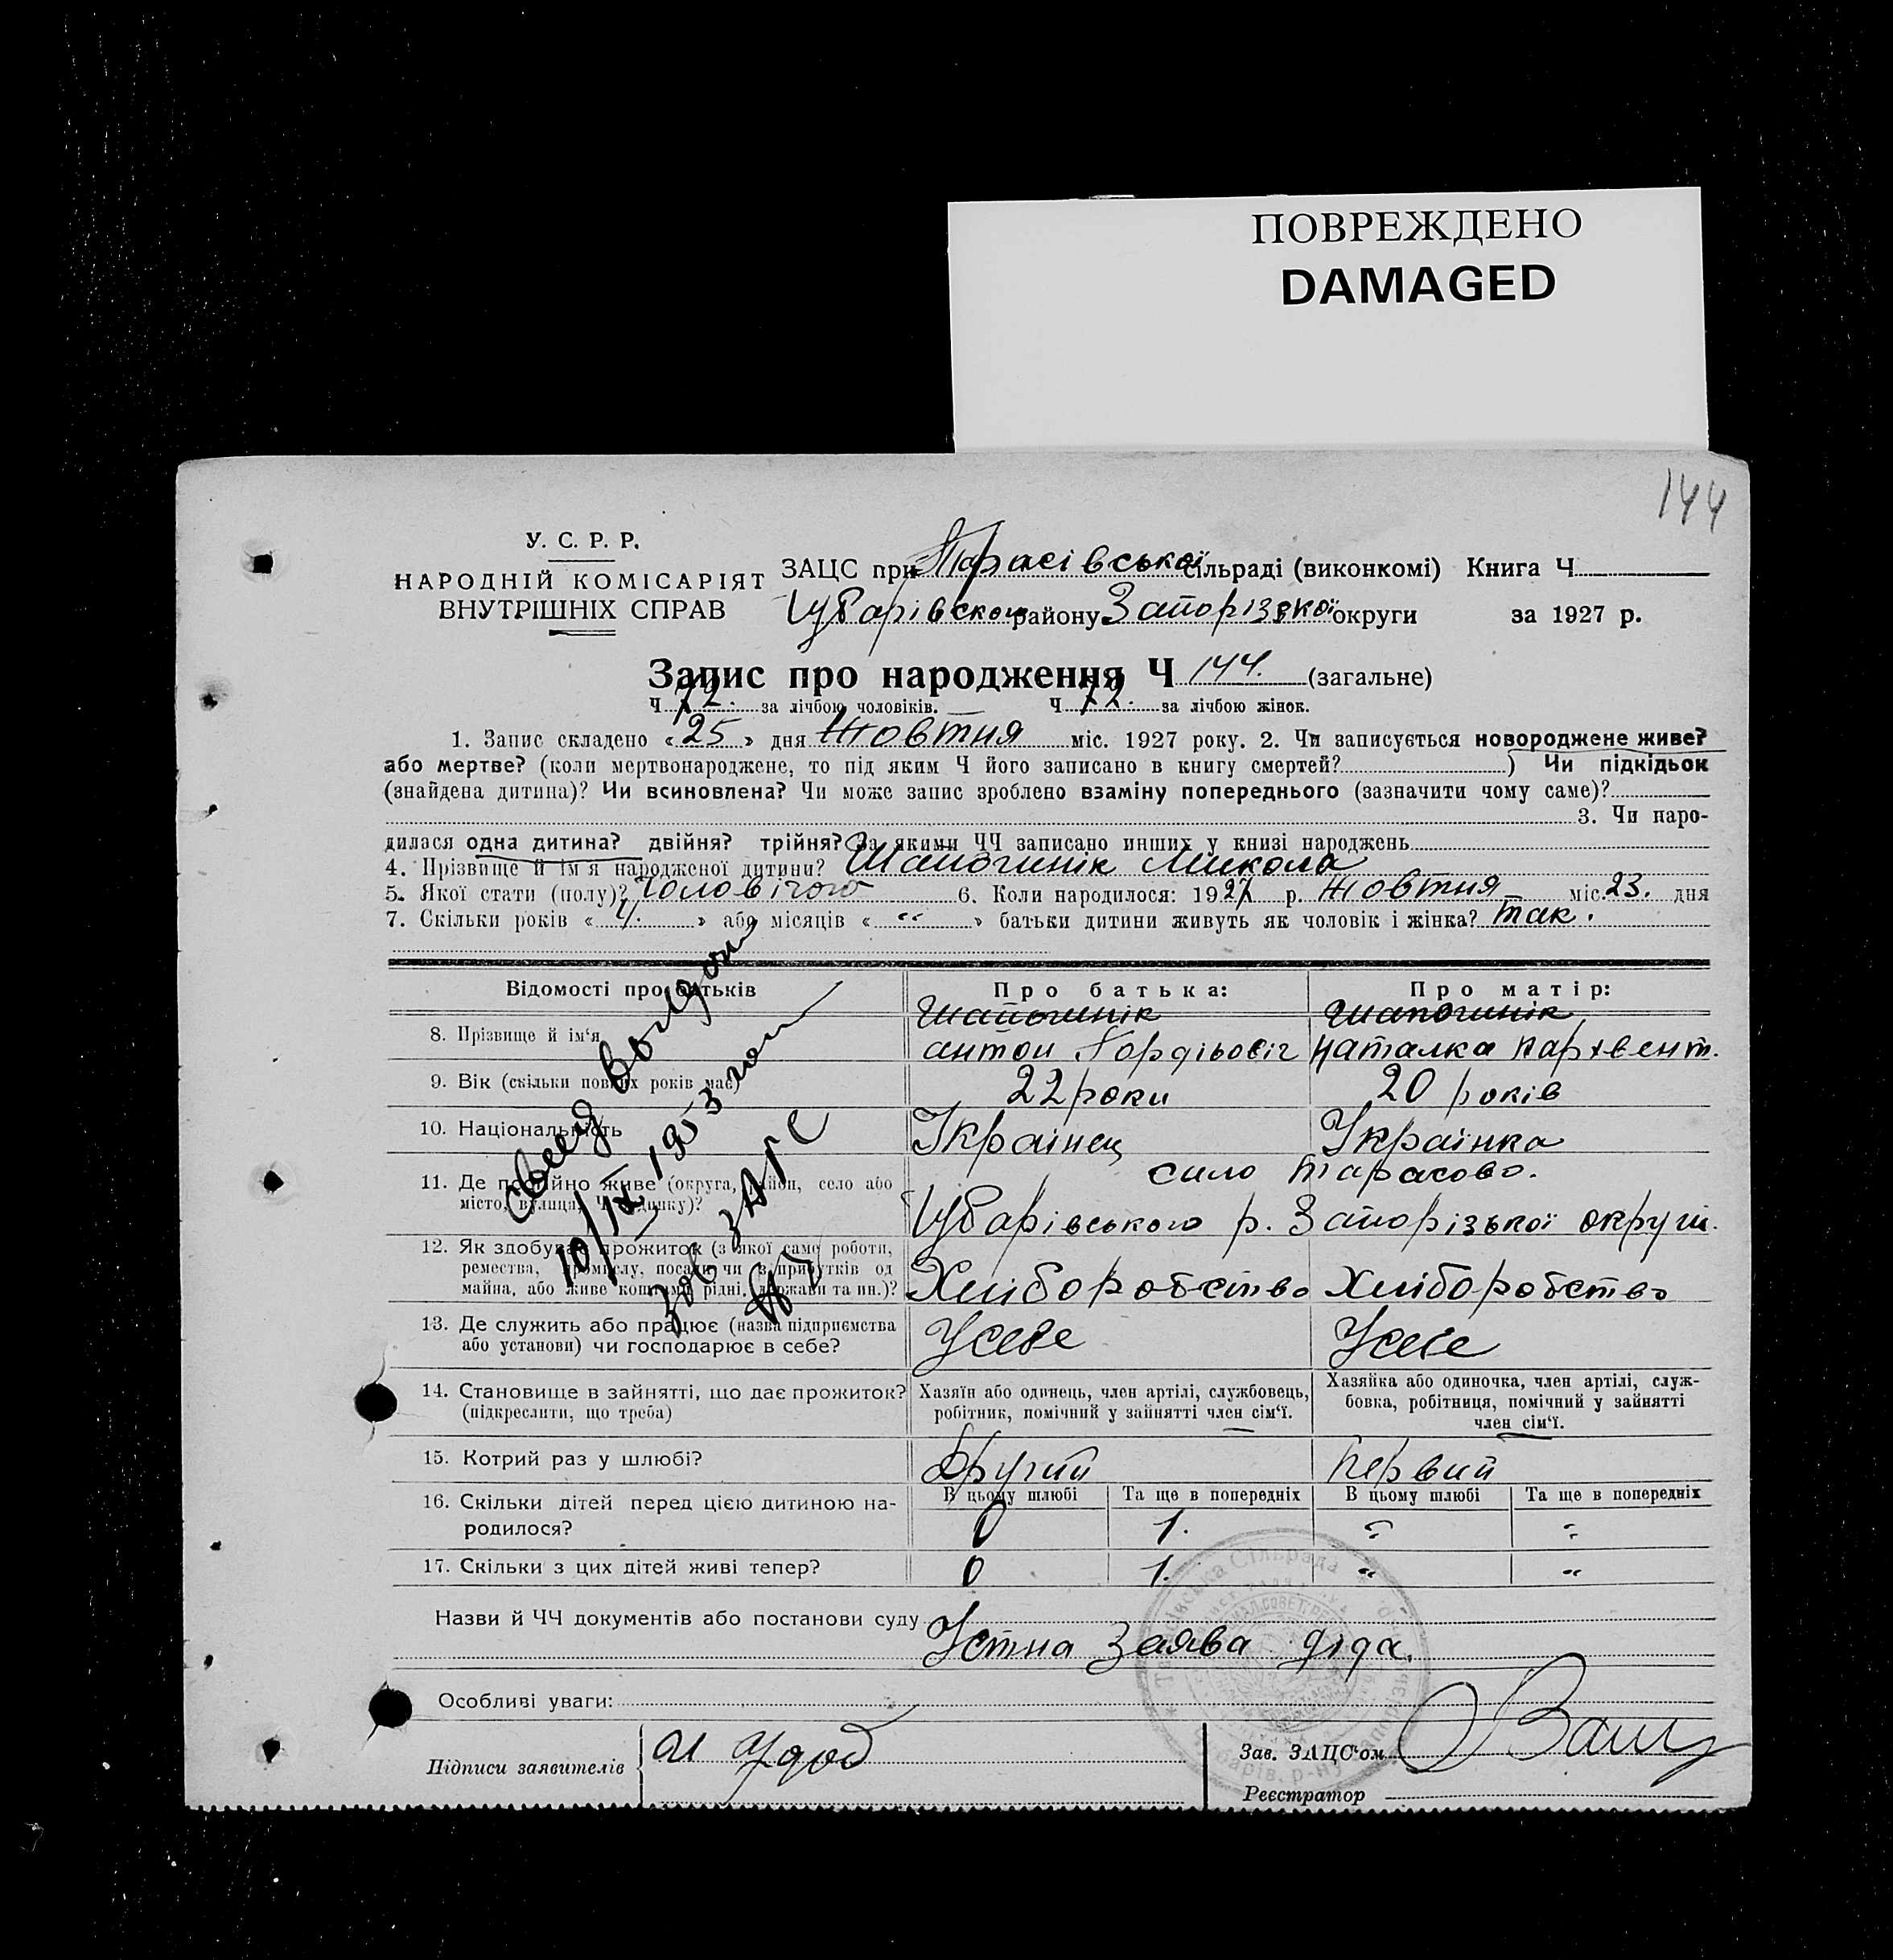 ПОВРЕЖДЕНО
DAMAGED
144
У. С. Р. Р.
НАРОДНІЙ КОМІСАРІЯТ
ВНУТРІШНІХ СПРАВ
ЗАЦС при Тарасівської сільраді (виконкомі) Книга Ч
району Запорізької округи за 1927 р.
Запис про народження Ч 144. (загальне)
Ч 72. за лічбою чоловіків. Ч 72. за лічбою жінок.
1. Запис складено « 25 » дня Жовтня міс. 1927 року. 2. Чи записується новороджене живе?
або мертве? (коли мертвонароджене, то під яким Ч його записано в книгу смертей? ) Чи підкідьок
(знайдена дитина)? Чи всиновлена? Чи може запис зроблено взаміну попереднього (зазначити чому саме)?
3. Чи наро-
дилася одна дитина? двійня? трійня? За якими ЧЧ записано инших у книзі народжень
4. Прізвище й ім'я народженої дитини? Шапочнік Микола
5. Якої стати (полу)? Чоловічого 6. Коли народилося: 1927 р. Жовтня міс. 23. дня
7. Скільки років « » або місяців « " » батьки дитини живуть як чоловік і жінка? Так.
Відомості про батьків Про батька: Про матір:
Шапочнік Шапочнік
8. Прізвище й ім'я Антон Гордійовіч Наталка Пархвент.
9. Вік (скільки повних років має) 22 роки 20 років
10. Національність Українец Українка
село Тарасово.
11. Де постійно живе (округа, район, село або
місто, вулиця, Ч будинку)? р. Запорізької округи.
12. Як здобуває прожиток (з якої саме роботи,
ремества, промислу, посади чи з прибутків од
майна, або живе коштами рідні, держави та ин.)? Хліборобство Хліборобство
13. Де служить або працює (назва підприємства
або установи) чи господарює в себе? У себе У себе
14. Становище в зайнятті, що дає прожиток? Хазяїн або одинець, член артілі, службовець, Хазяйка або одиночка, член артілі, служ-
(підкреслити, що треба) робітник, помічний у зайнятті член сім'ї. бовка, робітниця, помічний у зайнятті
член сім'ї.
15. Котрий раз у шлюбі? Другий Первий
В цьому шлюбі Та ще в попередніх В цьому шлюбі Та ще в попередніх
16. Скільки дітей перед цією дитиною на-
родилося? 0 1. " "
17. Скільки з цих дітей живі тепер? 0 1. " "
Назви й ЧЧ документів або постанови суду
Устна заява діда.
Особливі уваги:
Підписи заявителів
Зав. ЗАЦС'ом
Реєстратор
Свид выдано
10/IX 1953 года
Зав ЗАГС